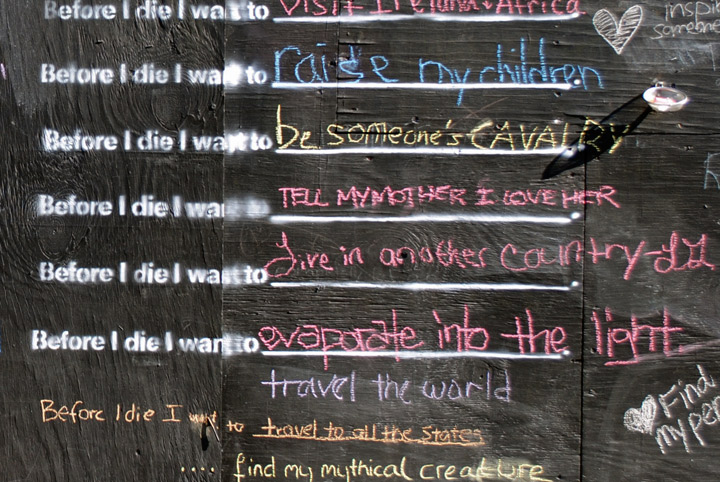 Before I die I want to visit Ireland & Africa
inspire
someone
Before I die I want to raise my children
Before I die I want to be someone's CAVALRY
Before I die I want to TELL MY MOTHER I LOVE HER
Before I die I want to Live in another country
Before I die I want to evaporate into the light
travel the world
Before I die I want to travel to all the states
Find
my
.... find my mythical creature